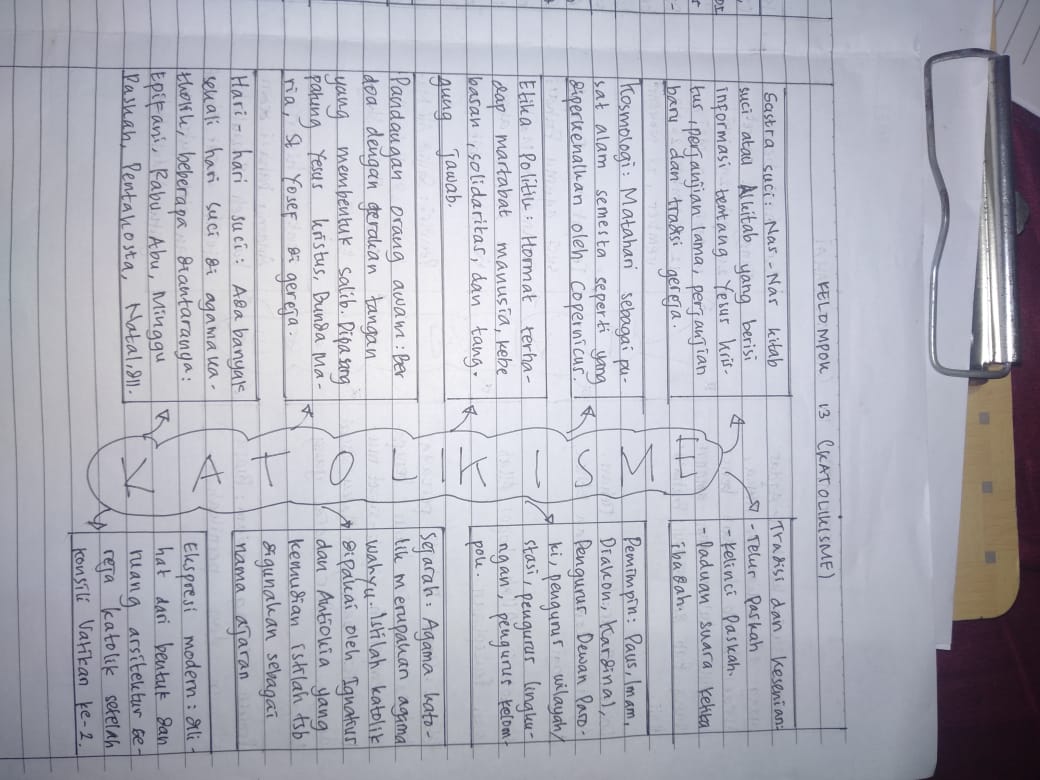 KELOMPOK 13 (KATOLIKISME)
Sastra suci: Nas-Nas kitab
suci atau Alkitab yang berisi
informasi tentang Yesus kris-
tus, perjanjian lama, perjanjian
baru dan tradisi gereja.
Kosmologi: Matahari sebagai pu-
sat alam semesta seperti yang
diperkenalkan oleh Copernicus.
Etika Politik: Hormat terha-
dap martabat manusia, kebe
basan, solidaritas, dan tang-
gung Jawab.
Pandangan orang awam: Ber
doa dengan gerakan tangan
yang membentuk salib. Dipasang
patung Yesus kristus, Bunda Ma-
ria, St Yosef di gereja.
Hari-hari suci: Ada banyak
sekali hari suci di agama ka-
tholik, beberapa diantaranya:
Epifani, Rabu Abu, Minggu
Paskah, Pentakosta, Natal, dll.
KATOLIKISME
Tradisi dan kesenian:
- Telur Paskah
- kelinci Paskah.
- Paduan suara ketika
ibadah.
Pemimpin: Paus, Imam,
Diakon, Kardinal,
Pengurus Dewan Paro-
ki, pengurus wilayah/
stasi, pengurus lingku-
ngan, pengurus kelom-
pok.
Sejarah: Agama kato-
lik merupakan agama
wahyu. Istilah katolik
dipakai oleh Ignatius
dan Antiokia yang
kemudian istilah tsb
digunakan sebagai
nama ajaran
Ekspresi modern: dili-
hat dari bentuk dan
ruang arsitektur ge-
reja katolik setelah
konsili Vatikan ke-2.